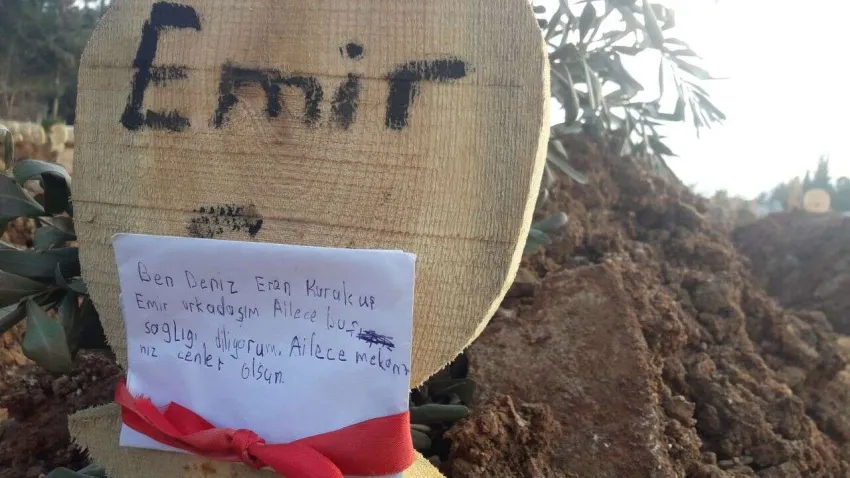 Emir
Ben Deniz Eran Kurakuş
Emir arkadaşım Ailece baş
sağlığı diliyorum. Ailece mekanı
nız cenet olsun.